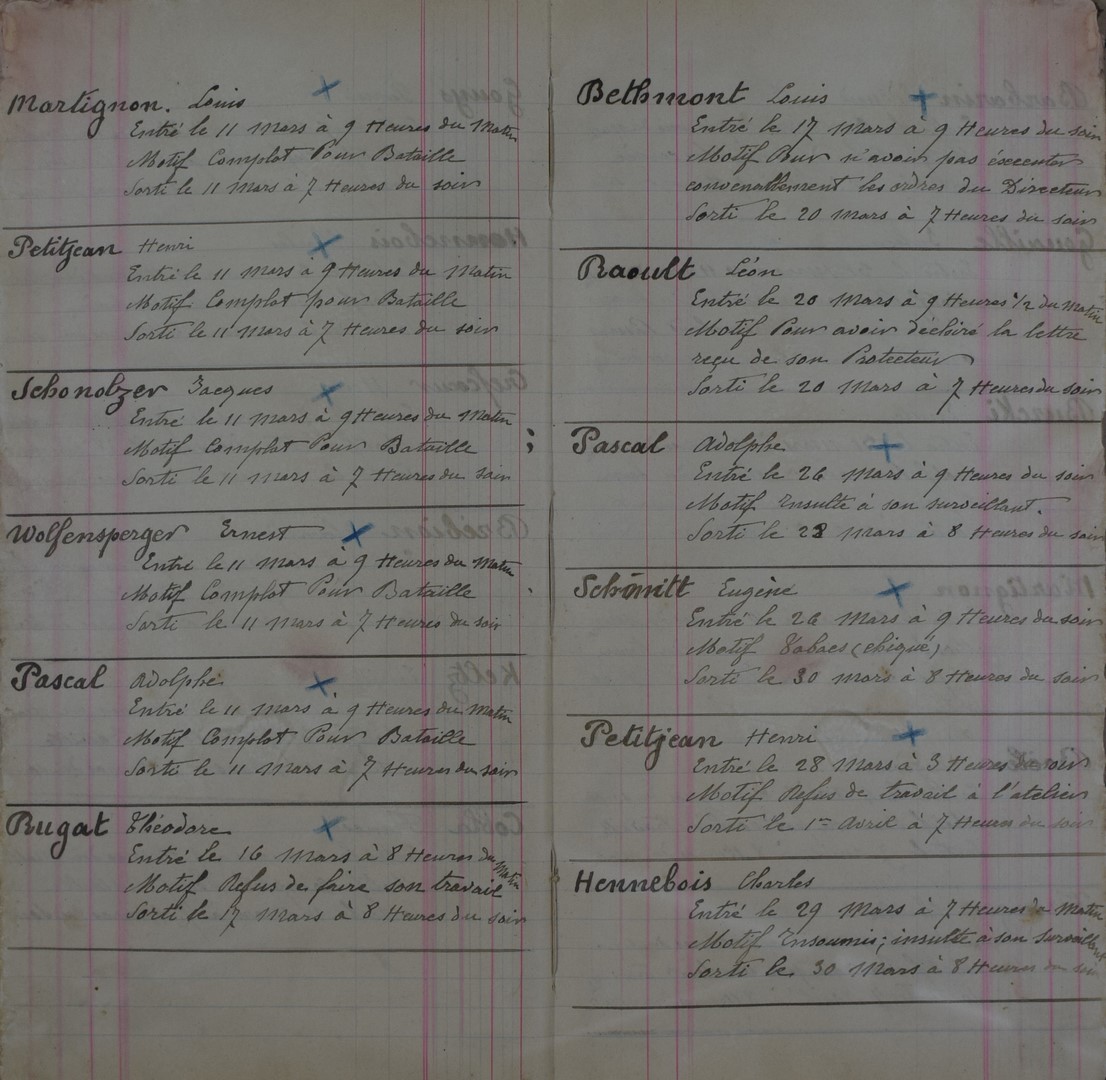 Martignon. Louis
Entré le 11 Mars à 9 Heures du Matin
Motif Complot Pour Bataille
Sorti le 11 Mars à 7 Heures du soir
Petitjean Henri
Entré le 11 Mars à 9 Heures du Matin
Motif Complot pour Bataille
Sorti le 11 Mars à 7 Heures du soir
Schonolzer Jacques
Entré le 11 Mars à 9 Heures du Matin
Motif Complot Pour Bataille
Sorti le 11 Mars à 7 Heures du soir
Wolfensperger Ernest
Entré le 11 Mars à 9 Heures du Matin
Motif Complot Pour Bataille
Sorti le 11 Mars à 7 Heures du soir
Pascal Adolphe
Entré le 11 Mars à 9 Heures du Matin
Motif Complot Pour Bataille
Sorti le 11 Mars à 7 Heures du soir
Rugat Théodore
Entré le 16 Mars à 8 Heures du Matin
Motif Refus de faire son travail
Sorti le 17 Mars à 8 Heures du soir
Bethmont Louis
Entré le 17 Mars à 9 Heures du soir
Motif Pour n'avoir pas éxecuter
convenablement les ordres du Directeur
Sorti le 20 Mars à 7 Heures du soir
Raoult Léon
Entré le 20 Mars à 9 Heures 1/2 du Matin
Motif Pour avoir déchiré la lettre
reçu de son Protecteur
Sorti le 20 Mars à 7 Heures du soir
Pascal Adolphe
Entré le 26 Mars à 9 Heures du soir
Motif Insulte à son surveillant.
Sorti le Mars à 8 Heures du soir
Schmitt Eugène
Entré le 26 Mars à 9 Heures du soir
Motif Tabacs (chiqué)
Sorti le 30 Mars à 8 Heures du soir
Petitjean Henri
Entré le 28 Mars à 3 Heures soir
Motif Refus de travail à l'atelier
Sorti le 1er Avril à 7 Heures du soir
Hennebois Charles
Entré le 29 Mars à 7 Heures du Matin
Motif Insoumis; insulte à son surveillant
Sorti le 30 Mars à 8 Heures du soir